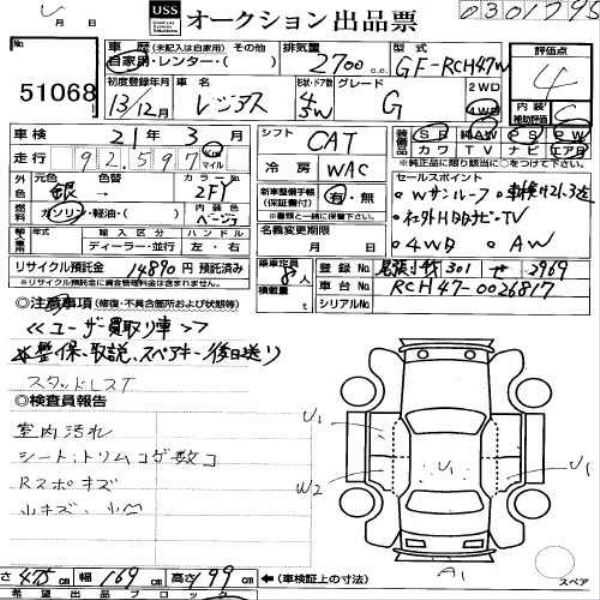 USS オークション 出品票 0301795
月 日
51068
車歴 (未記入は自家用) その他 排気量 型式 評価点
自家用・レンター・( ) 2700 c.c. GF-RCH47W 4
初度登録年月 車名 形状・ドア数 グレード 2WD
13/12月 レジアス 4 5W G 4WD 内装 補助評価 C
車検 21年 3月 シフト CAT 装備品 SR 純AW PS PW
カワ TV ナビ エアB
走行 92,597 Km マイル 冷房 WAC ※純正品に限り該当に○をつけて下さい
外色 元色 色替 カラーNo セールスポイント
銀 → 2FY 新車整備手帳 (保証書付) 有・無 ・Wサンルーフ ・車検付21.3迄
燃料 ガソリン・軽油・( ) 内装色 ベージュ ※書類と一緒に保管下さい ・社外HDDナビ・TV
輸入車用 年式 輸入区分 ハンドル 名義変更期限 ・4WD ・AW
ディーラー・並行 左・右 月 日
リサイクル預託金 14890円 預託済み 乗車定員 8人 登録No 尾張小牧 301 せ 2969
※リサイクル預託金に資金管理料金は含まれません。 積載量 t 車台No RCH47-0026817
シリアルNo
◎注意事項 (修復・不具合箇所および状態等)
<<ユーザー買取り車>>
※整保、取説、スペアキー後日送り
スタッドレスT
◎検査員報告
室内汚れ
シート、トリムコゲ数コ
Rスポキズ
小キズ、小凹
U1
W2
U1
U1
A1
スペア
さ 475cm 幅 169cm 高さ 199cm ←(車検証上の寸法)
希望出品ブロック